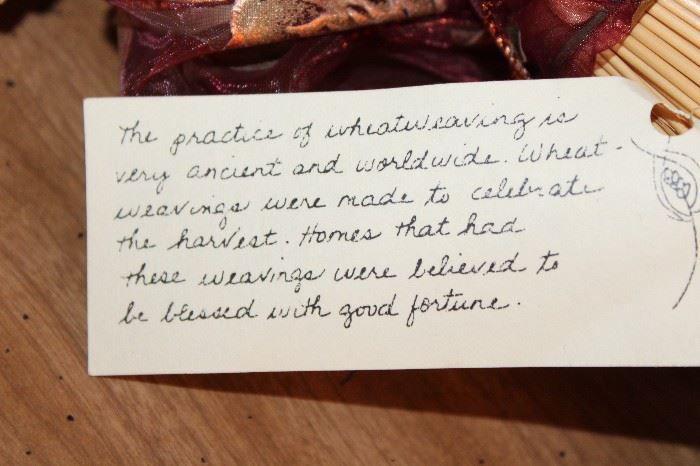 The practice of wheatweaving is
very ancient and worldwide. Wheat-
weavings were made to celebrate
the harvest. Homes that had
these weavings were believed to
be blessed with good fortune.